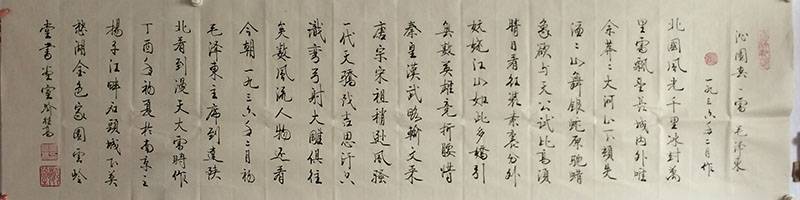 沁園春 雪 毛澤東
一九三六年二月作
北國風光千里冰封萬
里雪飄望長城内外唯
余莽〻大河上下頓失
滔〻山舞銀蛇原馳蠟
象欲与天公試比高須
晴日看紅裝素裹分外
妖嬈江山如此多嬌引
無數英雄竞折腰惜
秦皇漢武略輸文采
唐宗宋祖稍遜風騷
一代天驕成吉思汗只
識彎弓射大雕俱往
矣數風流人物还看
今朝一九三六年二月初
毛澤東主席到達陝
北看到漫天大雪時作
丁酉年初夏於南京之
揚子江畔石頭城下莫
愁湖金色家園雲
堂書